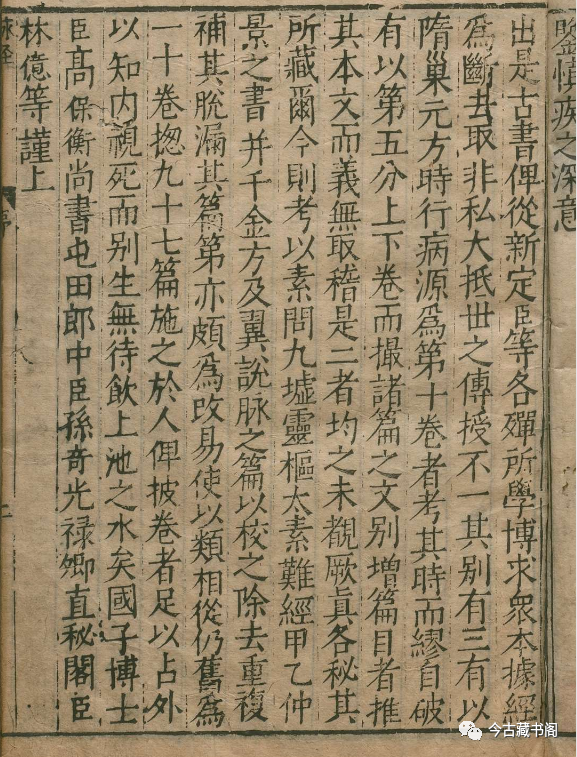 鑒慎疾之深意
出是古書俾從新定臣等各殫所學博求衆本據經
爲斷去取非私大抵世之傳授不一其别有三有以
隋巢元方時行病源爲第十卷者考其時而繆自破
有以第五分上下卷而撮諸篇之文别增篇目者推
其本文而義無取稽是二者均之未覩厥眞各秘其
所藏爾今則考以素問九墟靈樞太素難經甲乙仲
景之書并千金方及翼說脉之篇以校之除去重複
補其脫漏其篇第亦頗爲改易使以類相從仍舊爲
一十卷揔九十七篇施之於人俾披卷者足以占外
以知内視死而别生無待飮上池之水矣國子博士
臣高保衡尚書屯田郎中臣孫奇光禄卿直秘閣臣
林億等謹上
脉經
序
二
今古藏书阁